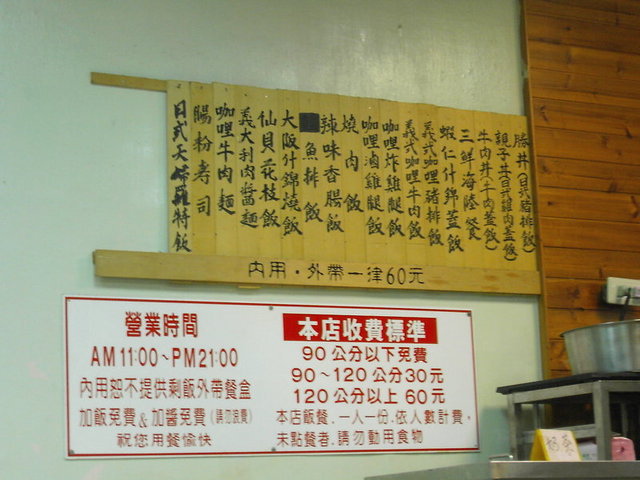 勝丼(日式豬排飯)
親子丼(日式雞肉蓋飯)
牛肉丼(牛肉蓋飯)
三鮮海陸餐
蝦仁什錦蓋飯
義式咖哩豬排飯
義式咖哩牛肉飯
咖哩炸雞腿飯
咖哩滷雞腿飯
燒肉飯
辣味香腸飯
魚排飯
大阪什錦燒飯
仙貝花枝飯
義大利肉醬麵
咖哩牛肉麵
腸粉壽司
日式天婦羅特飯
內用·外帶一律60元
營業時間
AM11:00~PM21:00
內用恕不提供剩飯外帶餐盒
加飯免費&加醬免費(請勿浪費)
祝您用餐愉快
本店收費標準
90公分以下免費
90~120公分30元
120公分以上 60元
本店飯餐.一人一份.依人數計費.
未點餐者.請勿動用食物